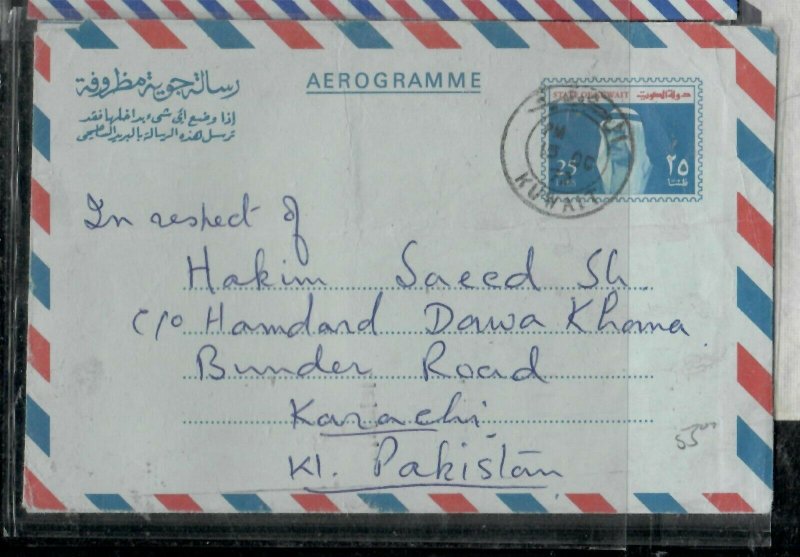 رسالة جوية مظروفة
إذا وضع أي شيء بداخلها فقد
ترسل هذه الرسالة بالبريد السطحي
AEROGRAMME
STATE OF KUWAIT دولة الكويت
25 ٢٥
FILS فلسا
PM
15 OC
KUWAIT
In respect of
Hakim Saeed Sh.
c/o Hamdard Dawa Khana
Bunder Road
Karachi
KI. Pakistan